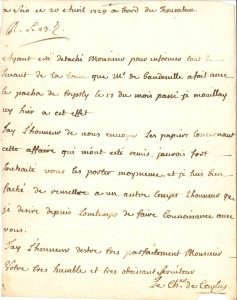 a Sio ce 20 Avril 1729 a bord du
R. le 23.
Ayant esté detaché Monsieur pour informer tout le
Levant de la que Mr. de Vandeuille a fait avec
le pacha de trypoly le 17 du mois passé je mouillay
yey hier a cet effet
J'ay L'honneur de vous envoyer Les papiers concernant
cette affaire qui m'ont esté remis, jaurois fort
souhaité vous les porter moymeme, et je suis bien
faché de remettre a un autre temps L'honneur que
je desire depuis Lomtemps de faire Connoissance avec
vous.
J'ay L'honneur destre tres parfaitement Monsieur
Votre tres humble et tres obeissant serviteur
Le Cher. de Caylus